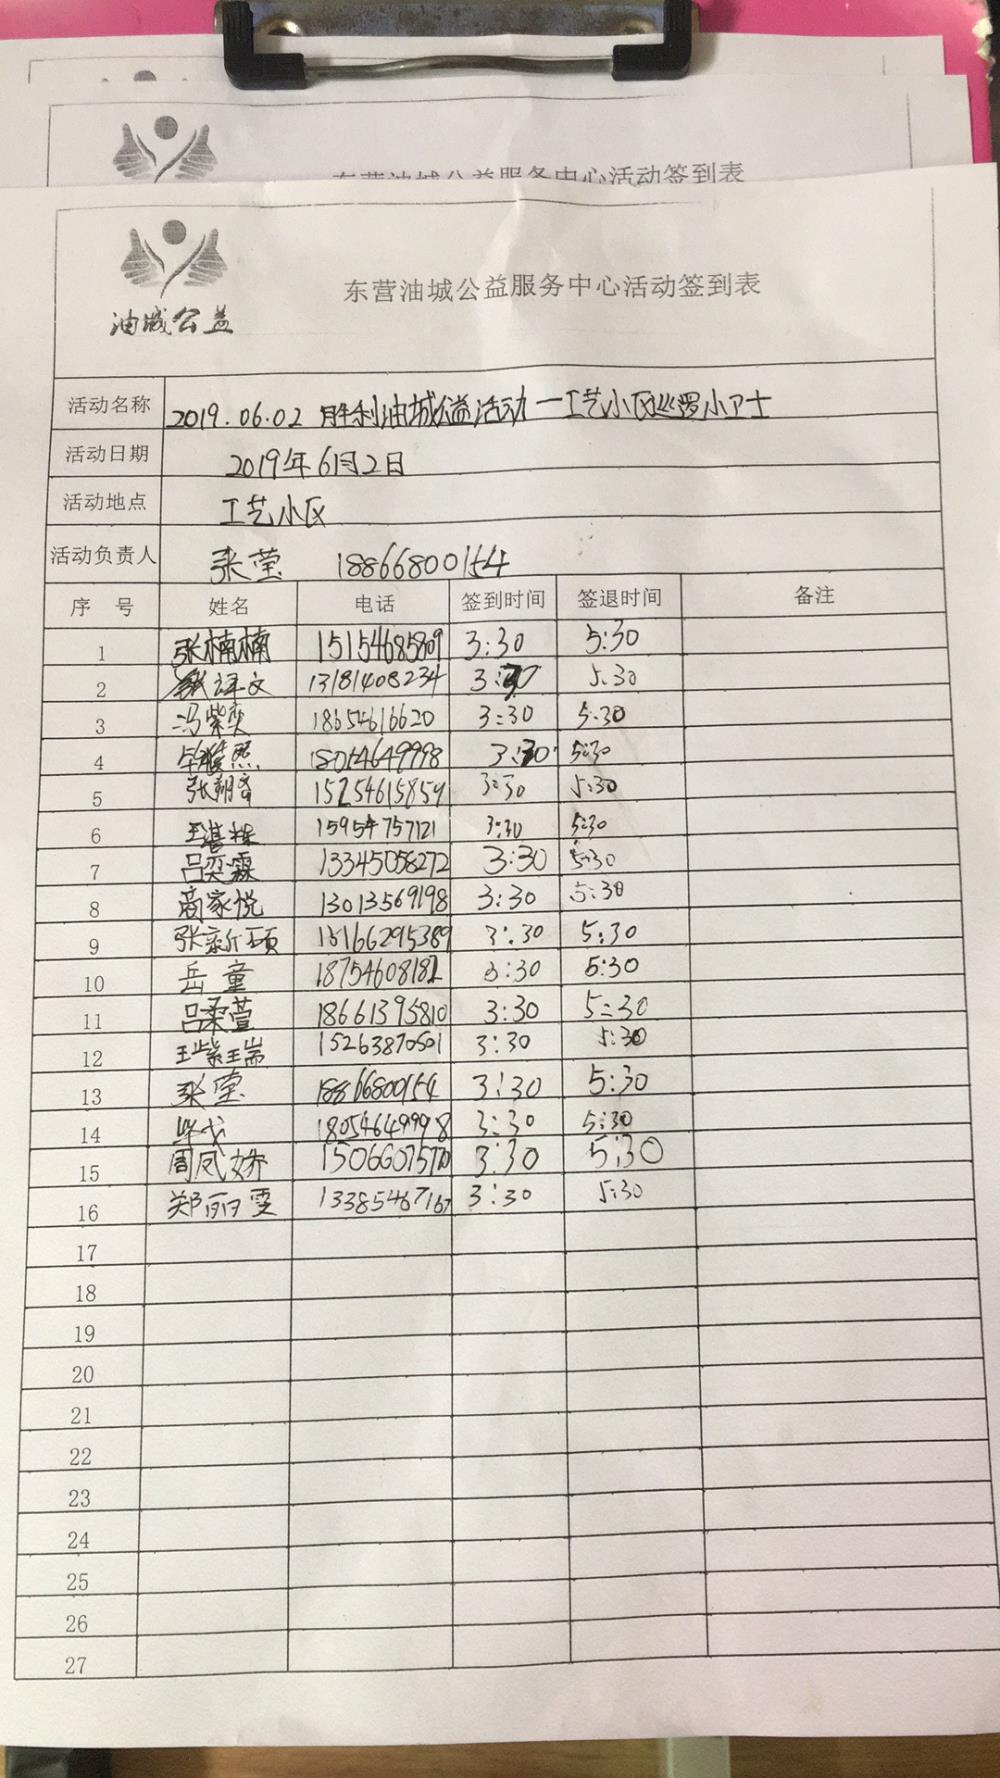 东营油城公益服务中心活动签到表
东营油城公益服务中心活动签到表
油城公益
活动名称 2019.06.02 胜利油城公益活动—工艺小区巡逻小卫士
活动日期 2019年6月2日
活动地点 工艺小区
活动负责人 张莹 18866800154
序 号 姓名 电话 签到时间 签退时间 备注
1 张楠楠 15154685809 3:30 5:30
2 13181408234 3:30 5:30
3 冯紫奕 18654616620 3:30 5:30
4 3:30 5:30
5 15254615859 3:30 5:30
6 15954757121 3:30 5:30
7 吕奕霖 13345058272 3:30 5:30
8 商家悦 13013569198 3:30 5:30
9 张新硕 3:30 5:30
10 岳童 18754608182 3:30 5:30
11 吕柔萱 18661395810 3:30 5:30
12 王紫瑞 15263870501 3:30 5:30
13 张莹 18866800154 3:30 5:30
14 18054649998 3:30 5:30
15 周凤娇 3:30 5:30
16 郑丽雯 13385467167 3:30 5:30
17
18
19
20
21
22
23
24
25
26
27